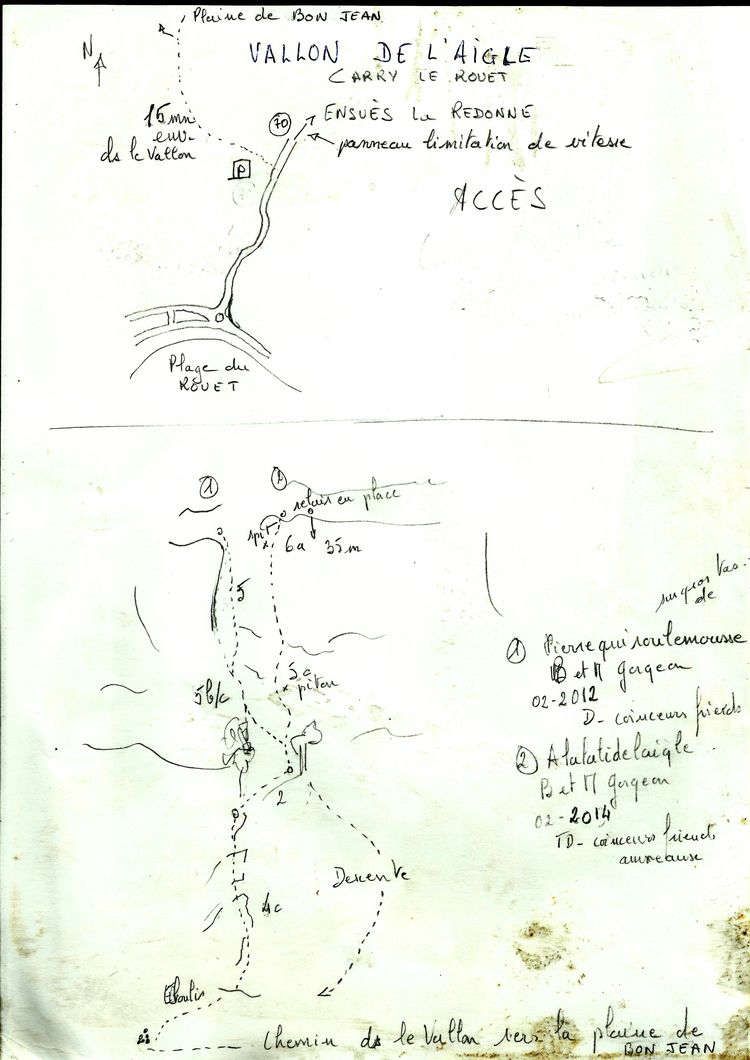 Plaine de BON JEAN
N
VALLON DE L'AIGLE
CARRY LE ROUET
15 mn
env.
ds le Vallon
70
ENSUÈS la REDONNE
panneau limitation de vitesse
P
ACCÈS
Plage du
ROUET
1
2
relais en place
spit
6a 35m
5
5a
piton
5b/c
2
Descente
4c
Eboulis
Chemin ds le Vallon vers la plaine de
BON JEAN
de
1 Pierrequiroulemousse
B et M Gorgeon
02-2012
D- coinceurs friends
2 Alalatidelaigle
B et M Gorgeon
02-2014
TD- coinceurs friends